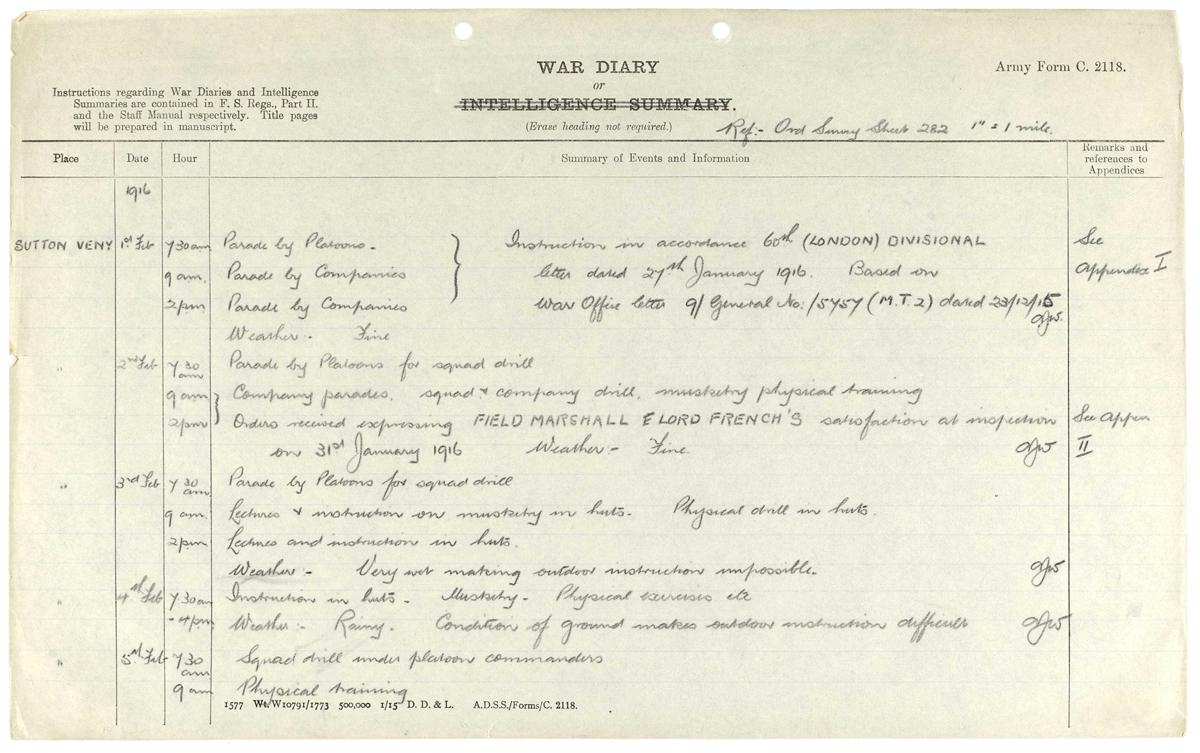 WAR DIARY
or
INTELLIGENCE SUMMARY.
(Erase heading not required.)
Army Form C. 2118.
Instructions regarding War Diaries and Intelligence
Summaries are contained in F. S. Regs., Part II.
and the Staff Manual respectively. Title pages
will be prepared in manuscript.
Ref:- Ord Survey Sheet 282 1" = 1 mile.
Place Date Hour Summary of Events and Information Remarks and references to Appendices
1916
SUTTON VENY 1st Feb 7 30 am Parade by Platoons. Instruction in accordance 60th (LONDON) DIVISIONAL See
9 am. Parade by Companies letter dated 27th January 1916. Based on Appendix I
2 pm Parade by Companies War Office letter 9/General No: /5757 (M.T.2) dated 23/12/15
Weather:- Fine
" 2nd Feb 7 30 am Parade by Platoons for squad drill
9 am Company parades, squad & company drill, musketry physical training
2 pm Orders received expressing FIELD MARSHALL LORD FRENCH'S satisfaction at inspection See Appen
on 31st January 1916 Weather:- Fine. II
" 3rd Feb 7 30 am. Parade by Platoons for squad drill
9 am. Lectures & instruction on musketry in huts. Physical drill in huts.
2 pm Lectures and instruction in huts.
Weather:- Very wet making outdoor instruction impossible.
" 4th Feb 7 30 am Instruction in huts. Musketry. Physical exercises etc
- 4 pm Weather:- Rainy. Condition of ground makes outdoor instruction difficult
" 5th Feb 7 30 am Squad drill under platoon commanders
9 am Physical training
1577 Wt. W10791/1773 500,000 1/15 D. D. & L. A.D.S.S./Forms/C. 2118.